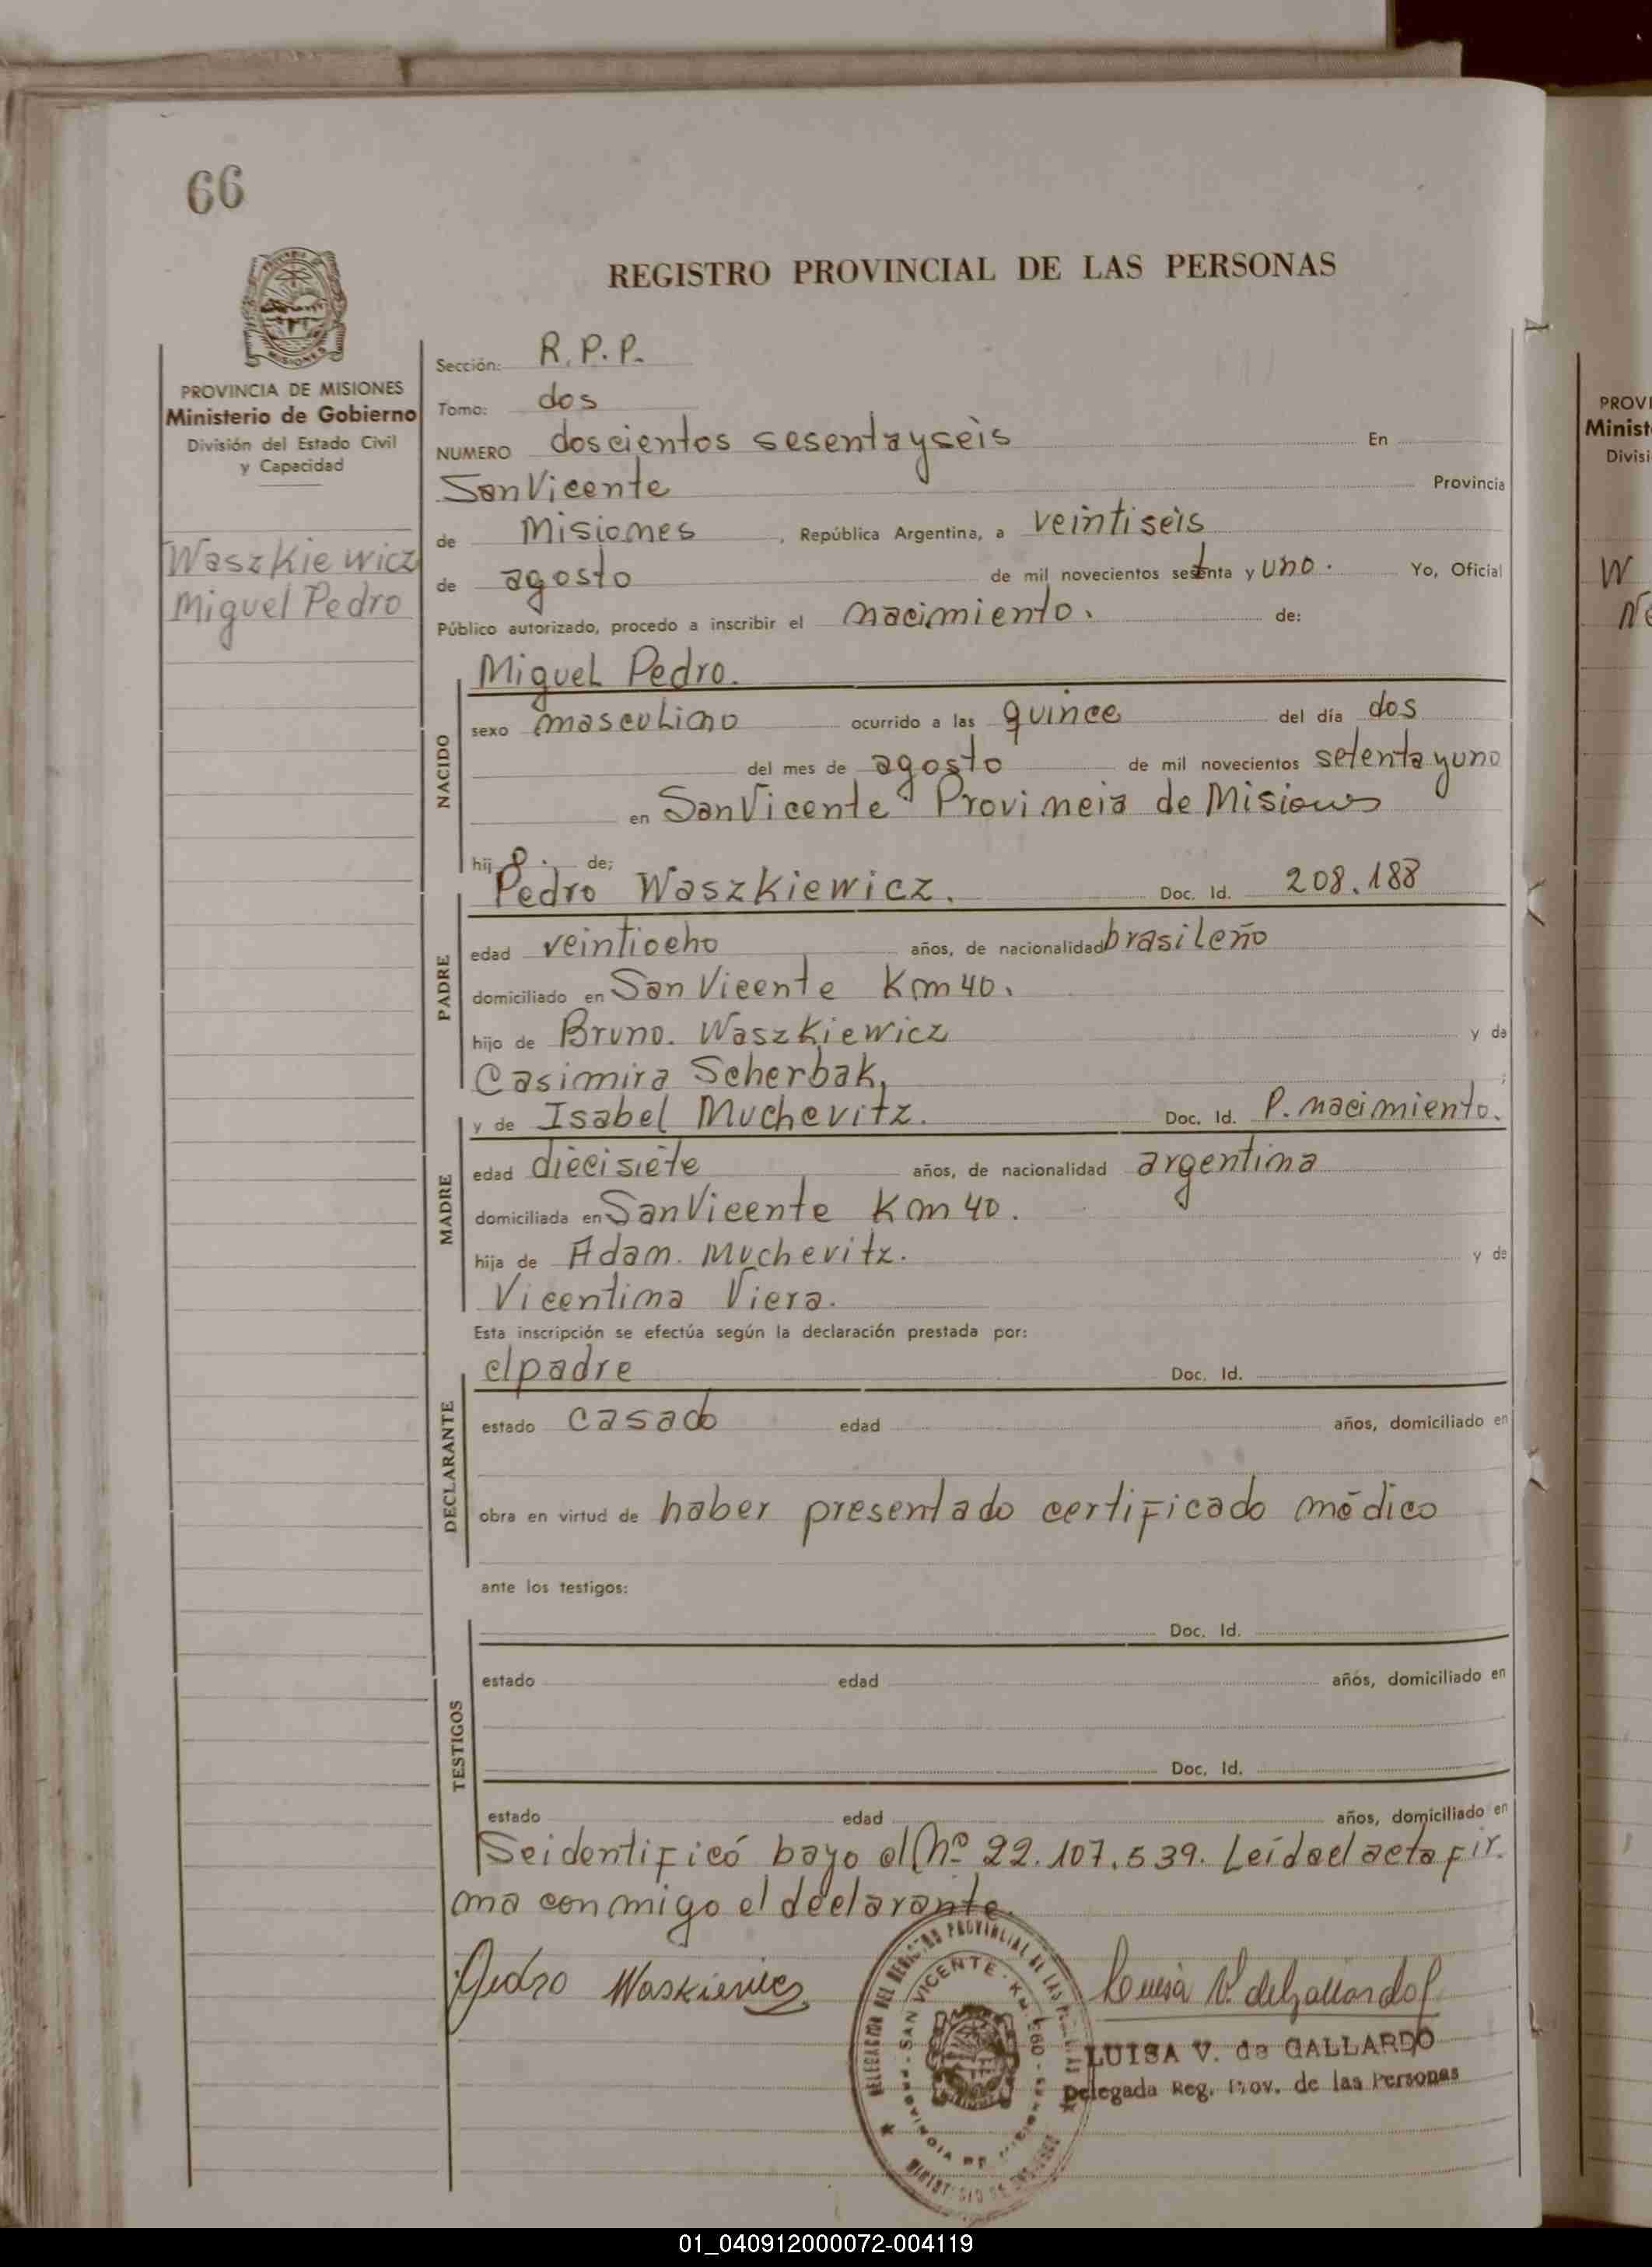 66
REGISTRO PROVINCIAL DE LAS PERSONAS
PROVINCIA DE MISIONES
Ministerio de Gobierno
División del Estado Civil
y Capacidad
Waszkiewicz
Miguel Pedro
Sección: R.P.P.
Tomo: dos
NUMERO doscientos sesentayseis En
San Vicente Provincia
de Misiones, República Argentina, a veintiseis
de agosto de mil novecientos setenta y uno. Yo, Oficial
Público autorizado, procedo a inscribir el nacimiento. de:
NACIDO
Miguel Pedro.
sexo masculino ocurrido a las quince del día dos
del mes de agosto de mil novecientos setenta y uno
en San Vicente Provincia de Misiones
hijo. de;
PADRE
Pedro Waszkiewicz. Doc. Id. 208.188
edad veintiocho años, de nacionalidad brasileño
domiciliado en San Vicente Km 40.
hijo de Bruno. Waszkiewicz y de
Casimira Scherbak, ;
MADRE
y de Isabel Muchevitz. Doc. Id. P. nacimiento.
edad diecisiete años, de nacionalidad argentina
domiciliada en San Vicente Km 40.
hija de Adam. Muchevitz. y de
Vicentina Viera.
Esta inscripción se efectúa según la declaración prestada por:
DECLARANTE
el padre Doc. Id.
estado casado edad años, domiciliado en
obra en virtud de haber presentado certificado médico
ante los testigos:
TESTIGOS
Doc. Id.
estado edad años, domiciliado en
Doc. Id.
estado edad años, domiciliado en
Se identificó bayo el Nº 22.107.539. Leída el acta fir-
ma conmigo el declarante.
Pedro Waskieviez
Luisa V. de Gallardo
LUISA V. de GALLARDO
Delegada Reg. Prov. de las Personas
DELEGACION DEL REGISTRO PROVINCIAL DE LAS
SAN VICENTE - KM.
PROVINCIA DE
PROVI
Minist
Divisi
W
01_040912000072-004119